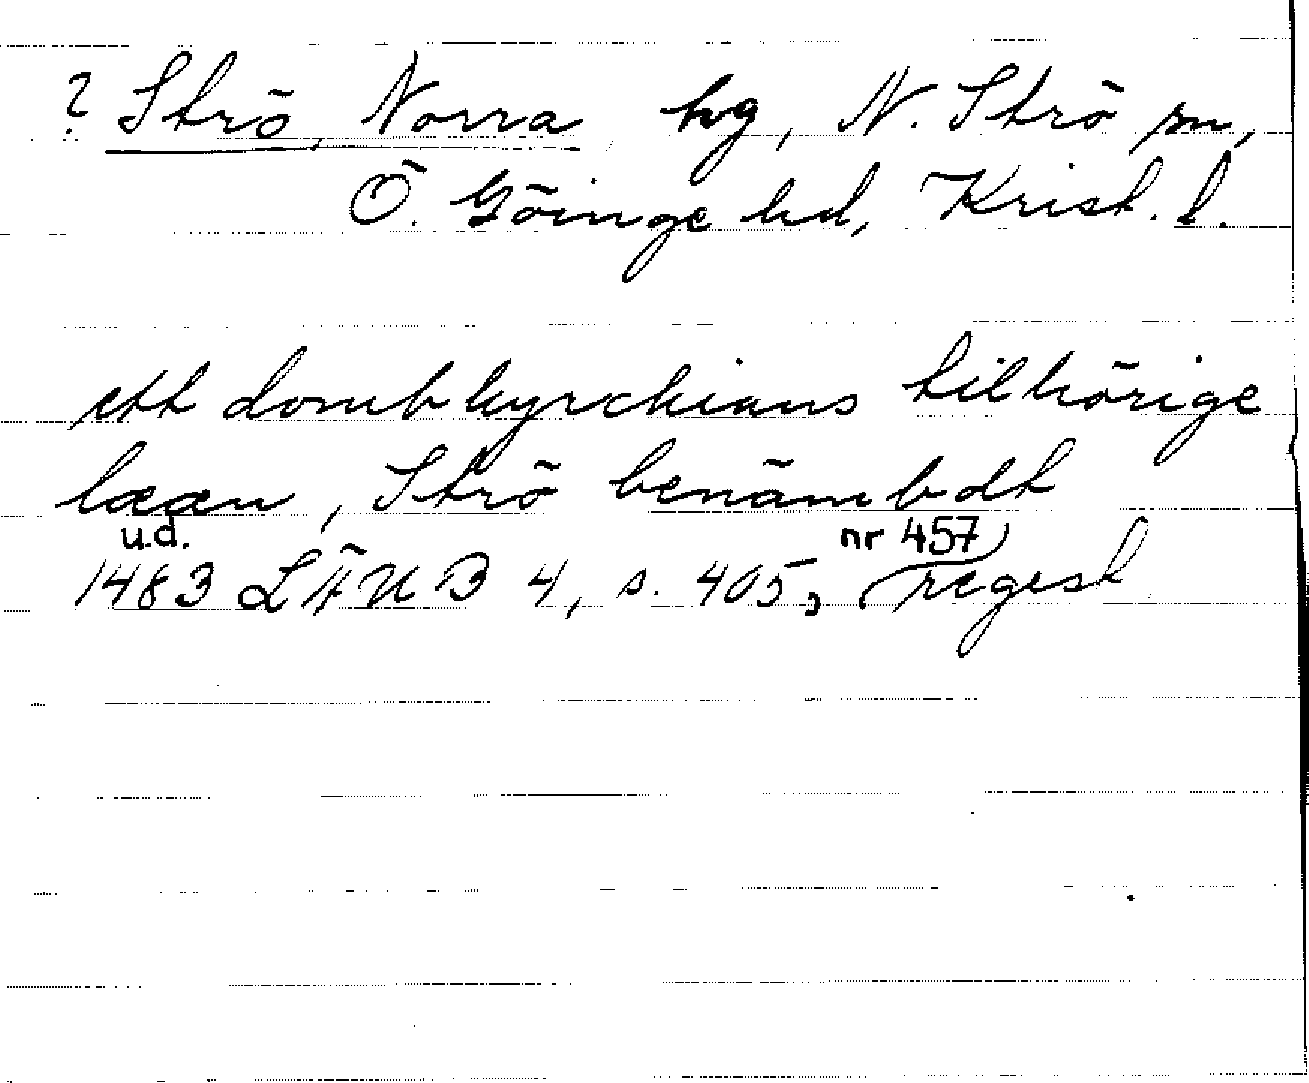 ? Strö, Norra hg, N. Strö sn,
Ö. Göinge hd, Krist. l.
ett dombkyrckians tilhörige
læen, Strö benämbdt
u.d. nr 457
1483 LÄUB 4, s. 405, regest